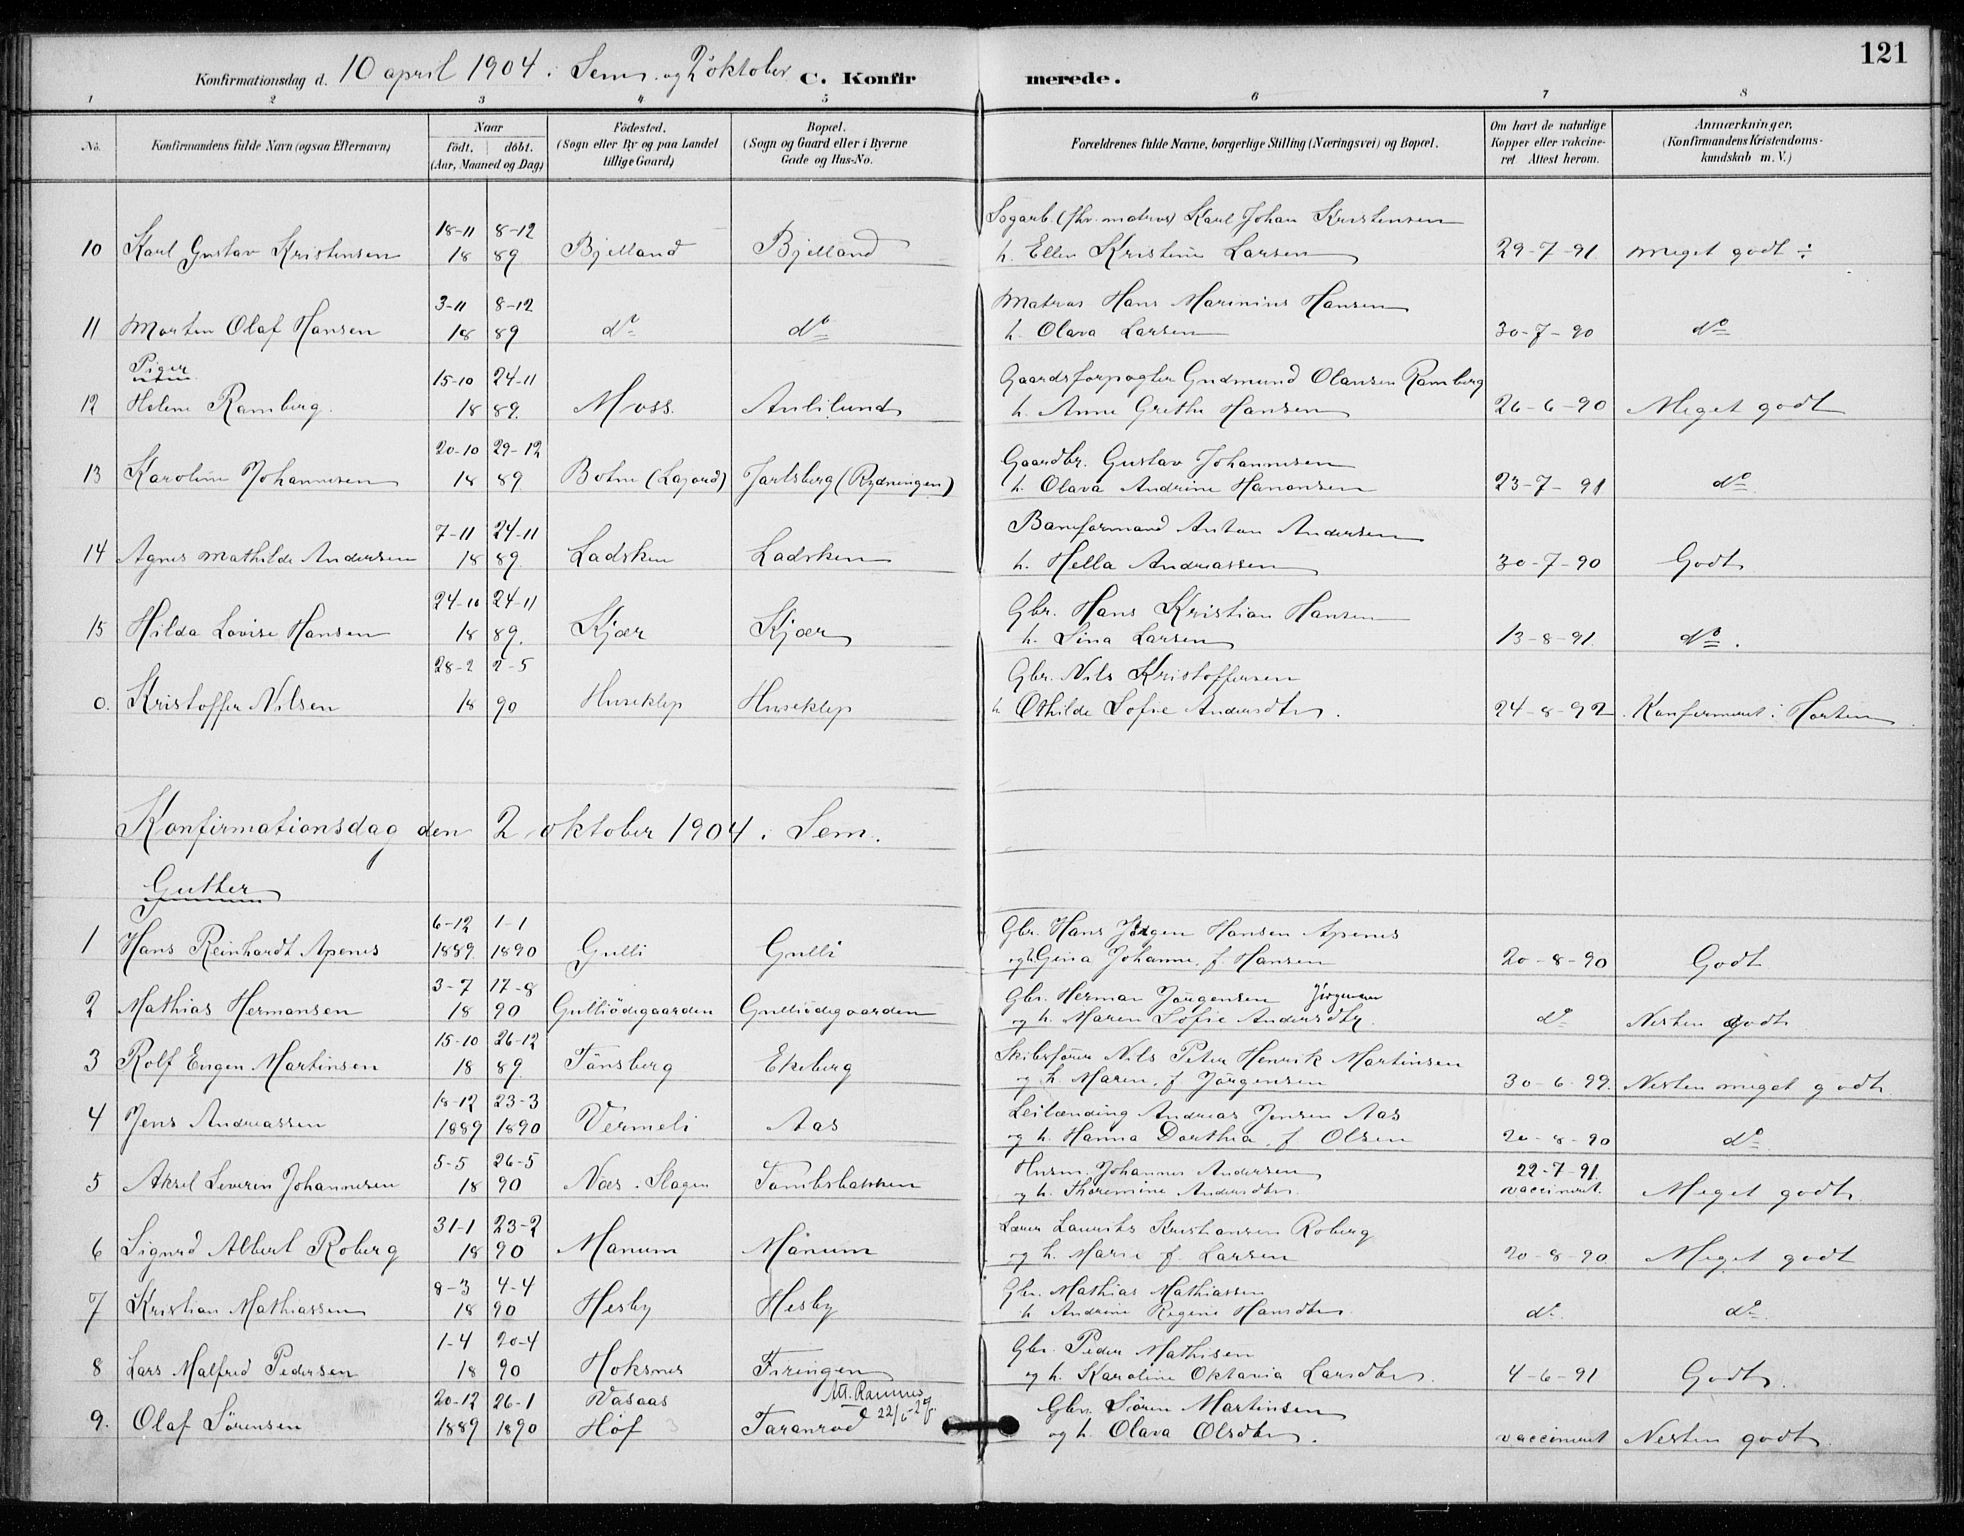 121
Konfirmationsdag d. 10 april 1904 i Sem. og 2 oktober C. Konfirmerede.
1 2 3 4 5 6 7 8
No. Konfirmandens fulde Navn (ogsaa Efternavn) Naar födt. döbt. (Aar, Maaned og Dag) Födested. (Sogn eller By og paa Landet tillige Gaard) Bopæl. (Sogn og Gaard eller i Byerne Gade og Hus-No. Forældrenes fulde Navne, borgerlige Stilling (Næringsvei) og Bopæl. Om havt de naturlige Kopper eller vakcineret Attest herom. Anmærkninger. (Konfirmandens Kristendomskundskab m. V.)
18-11 8-12 Karl Johan Kristensen
10 Karl Gustav Kristensen 18 89 Bjelland Bjelland h. Ellen Kristine Larsen 29-7-91 Meget godt ÷
3-11 8-12 Matros Hans Marinius Hansen
11 Morten Olaf Hansen 18 89 do do h. Olava Larsen 30-7-90 do
Piger
15-10 24-11 Gaardsforpagter Gudmund Olausen Ramberg
12 Helene Ramberg. 18 89 Moss. Aulilund h. Anne Grethe Hansen 26-6-90 Meget godt
20-10 29-12 Gaardbr. Gustav Johannesen
13 Karoline Johannesen 18 89 Botne (Lagord) Jarlsberg (Rydningen) h. Olava Andrine Hanansen 23-7-91 do
7-11 24-11 Baneformand Anton Andersen
14 Agnes Mathilde Andersen 18 89 Ladsken Ladsken h. Hella Andreassen 30-7-90 Godt
24-10 24-11 Gbr. Hans Kristian Hansen
15 Hilda Lovise Hansen 18 89. Kjær Kjær h. Sina Larsen 13-8-91. do.
28-2 2-5 Gbr. Nils Kristoffersen
0. Kristoffer Nilsen 18 90 Huseklep Huseklep h Othilde Sofie Andersdtr. 24-8-92 Konfirmeret i Horten
Konfirmationsdag den 2 oktober 1904 i Sem.
Gutter
6-12 1-1 Gbr. Hans Jörgen Hansen Apenes
1 Hans Reinhardt Apenes 1889 1890 Gulli Gulli og h Gina Johanne f. Hansen 20-8-90 Godt
3-7 17-8 Gbr. Herman Jörgensen Jörgensen
2 Mathias Hermansen 18 90 Gulliödegaarden Gulliödegaarden og h. Maren Sofie Andersdtr. do Nesten godt
15-10 26-12 Skibsfører Nils Peter Henrik Martinsen
3 Rolf Eugen Martinsen 18 89 Tönsberg Ekeberg og h Maren f Jörgensen 30-6-99. Nesten meget godt
18-12 23-3 Leilænding Andreas Jensen Aas
4 Jens Andreassen 1889 1890 Vermeli Aas og h. Hanna Dorthea f Olsen 20-8-90 do
5-5 26-5 Husm. Johannes Andersen 22-7-91
5 Aksel Severin Johannesen 18 90 Næs i Slagen Tambsbakken og h. Thoremine Andersdtr. vaccineret. Meget godt
31-1 23-2 Lærer Laurits Kristiansen Roberg
6 Sigurd Albert Roberg 18 90 Manum Mánum og h. Marie f. Larsen 20-8-90 Meget godt
8-3 4-4 Gbr. Mathias Mathiassen
7 Kristian Mathiassen 18 90 Hesby Hesby h Andrine Regine Hansdtr. do do
1-4 20-4 Gbr. Peder Mathisen
8 Lars Malfred Pedersen 18 90 Hoksnes Firingen og h. Karoline Oktavia Larsdtr. 4-6-91 Godt
20-12 26-1 Vasaas Utt. Ramnes 22/6-27. Gbr. Sören Martinsen
9. Olaf Sørensen 1889 1890 Høf Faranrød og h. Olava Olsdtr. vaccineret Nesten godt.